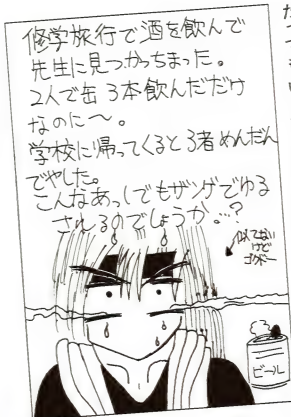 修学旅行で酒を飲んで
先生に見つかっちまった。
2人で缶3本飲んだだけ
なのに〜。
学校に帰ってくると3者めんだん
でやした。
こんなあっしでもザンゲでゆる
されるのでしょうか…?
似てない
けど
ゴクボー
ビール